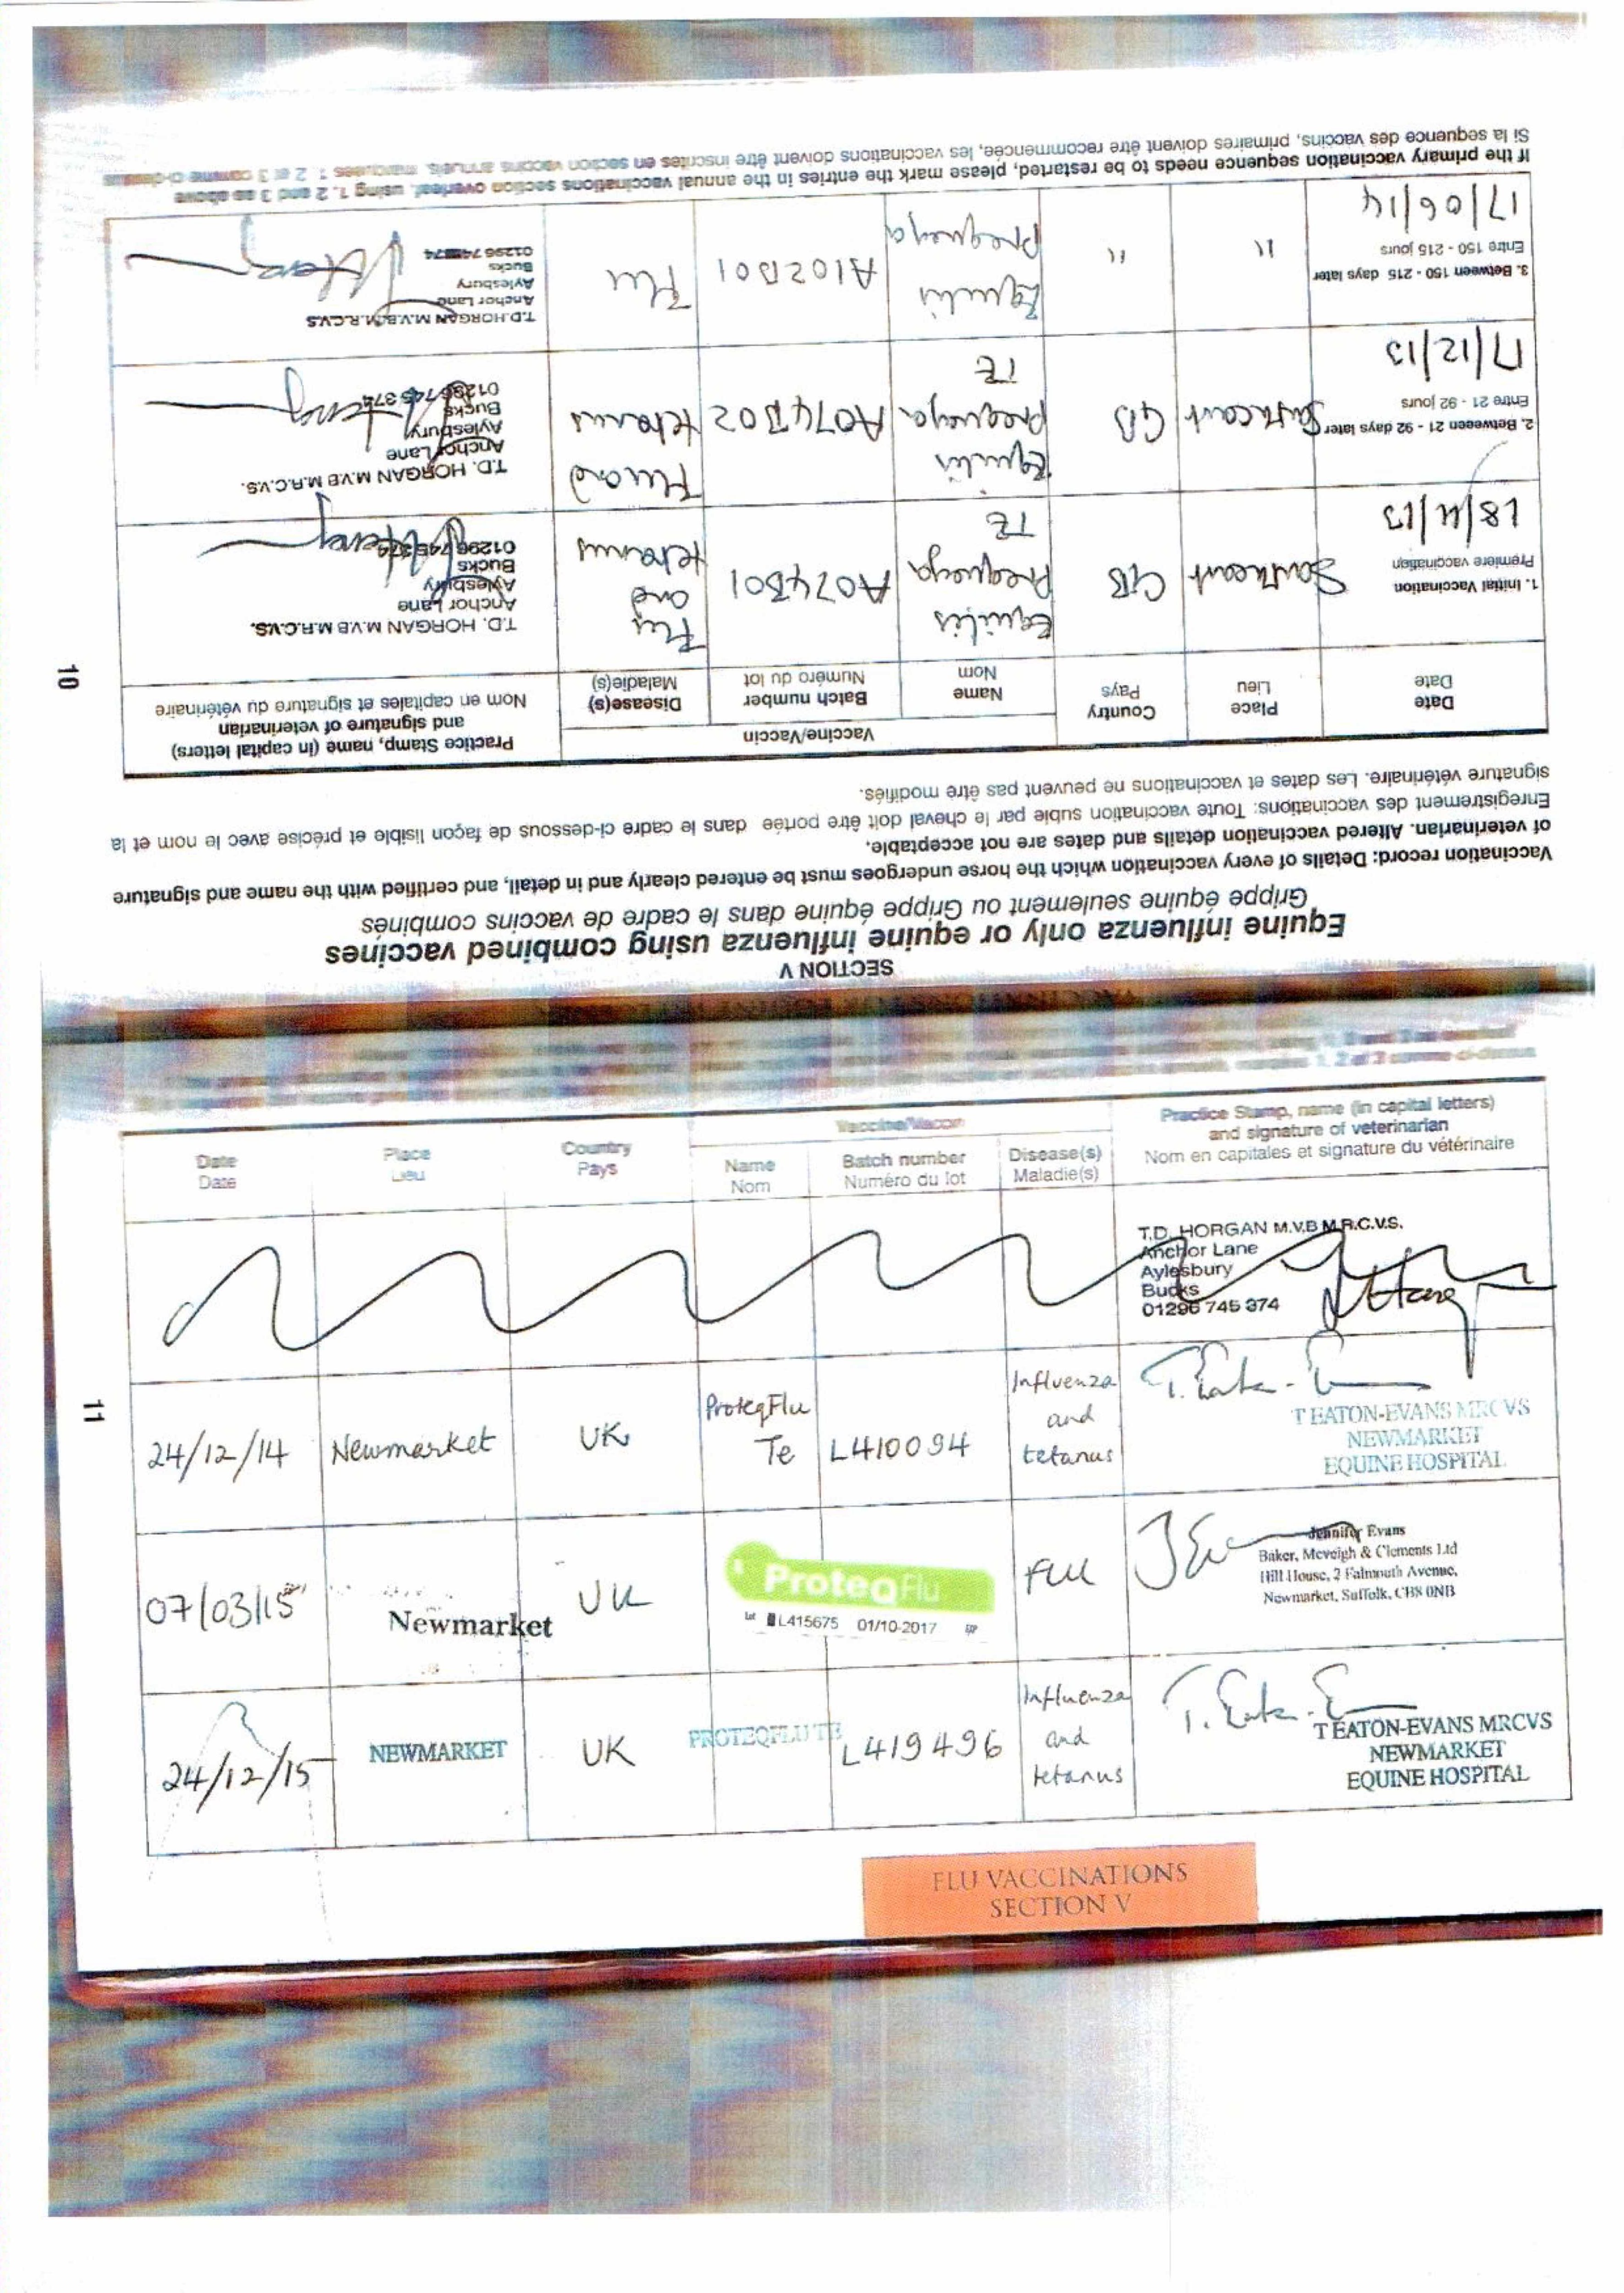 SECTION V
Equine influenza only or equine influenza using combined vaccines
Grippe équine seulement ou Grippe équine dans le cadre de vaccins combinés
Vaccination record: Details of every vaccination which the horse undergoes must be entered clearly and in detail, and certified with the name and signature
of veterinarian. Altered vaccination details and dates are not acceptable.
Enregistrement des vaccinations: Toute vaccination subie par le cheval doit être portée dans le cadre ci-dessous de façon lisible et précise avec le nom et la
signature vétérinaire. Les dates et vaccinations ne peuvent pas être modifiés.
Date
Date
Place
Lieu
Country
Pays
Vaccine/Vaccin
Name
Nom
Batch number
Numéro du lot
Disease(s)
Maladie(s)
Practice Stamp, name (in capital letters)
and signature of veterinarian
Nom en capitales et signature du vétérinaire
10
1. Initial Vaccination
Première vaccination
18/11/13
Southcourt
GB
Equilis
Prequenza
TE
A074B01
Flu
and
tetanus
T.D. HORGAN M.V.B M.R.C.V.S.
Anchor Lane
Aylesbury
Bucks
01296 745 374
2. Betweeen 21 - 92 days later
Entre 21 - 92 jours
17/12/13
Southcourt
GB
Equilis
Prequenza
TE
A074B02
Flu and
tetanus
T.D. HORGAN M.V.B M.R.C.V.S.
Anchor Lane
Aylesbury
Bucks
01296 745 374
3. Between 150 - 215 days later
Entre 150 - 215 jours
17/06/14
"
"
Equilis
Prequenza
A102B01
Flu
T.D. HORGAN M.V.B M.R.C.V.S
Anchor Lane
Aylesbury
Bucks
01296 745374
If the primary vaccination sequence needs to be restarted, please mark the entries in the annual vaccinations section overleaf, using 1, 2 and 3 as above
Si la sequence des vaccins, primaires doivent être recommencée, les vaccinations doivent être inscrites en section vaccins annuels, marquées 1, 2 et 3 comme ci-dessus
Date
Date
Place
Lieu
Country
Pays
Vaccine/Vaccin
Name
Nom
Batch number
Numéro du lot
Disease(s)
Maladie(s)
Practice Stamp, name (in capital letters)
and signature of veterinarian
Nom en capitales et signature du vétérinaire
T.D. HORGAN M.V.B M.R.C.V.S.
Anchor Lane
Aylesbury
Bucks
01296 745 374
11
24/12/14
Newmarket
UK
ProteqFlu
Te
L410094
Influenza
and
tetanus
T EATON-EVANS MRCVS
NEWMARKET
EQUINE HOSPITAL
07/03/15
Newmarket
UK
ProteqFlu
Lot L415675 01/10-2017 EXP
FLU
Jennifer Evans
Baker, Mcveigh & Clements Ltd
Hill House, 2 Falmouth Avenue,
Newmarket, Suffolk, CB8 0NB
24/12/15
NEWMARKET
UK
PROTEQFLU TE
L419496
Influenza
and
tetanus
T EATON-EVANS MRCVS
NEWMARKET
EQUINE HOSPITAL
FLU VACCINATIONS
SECTION V